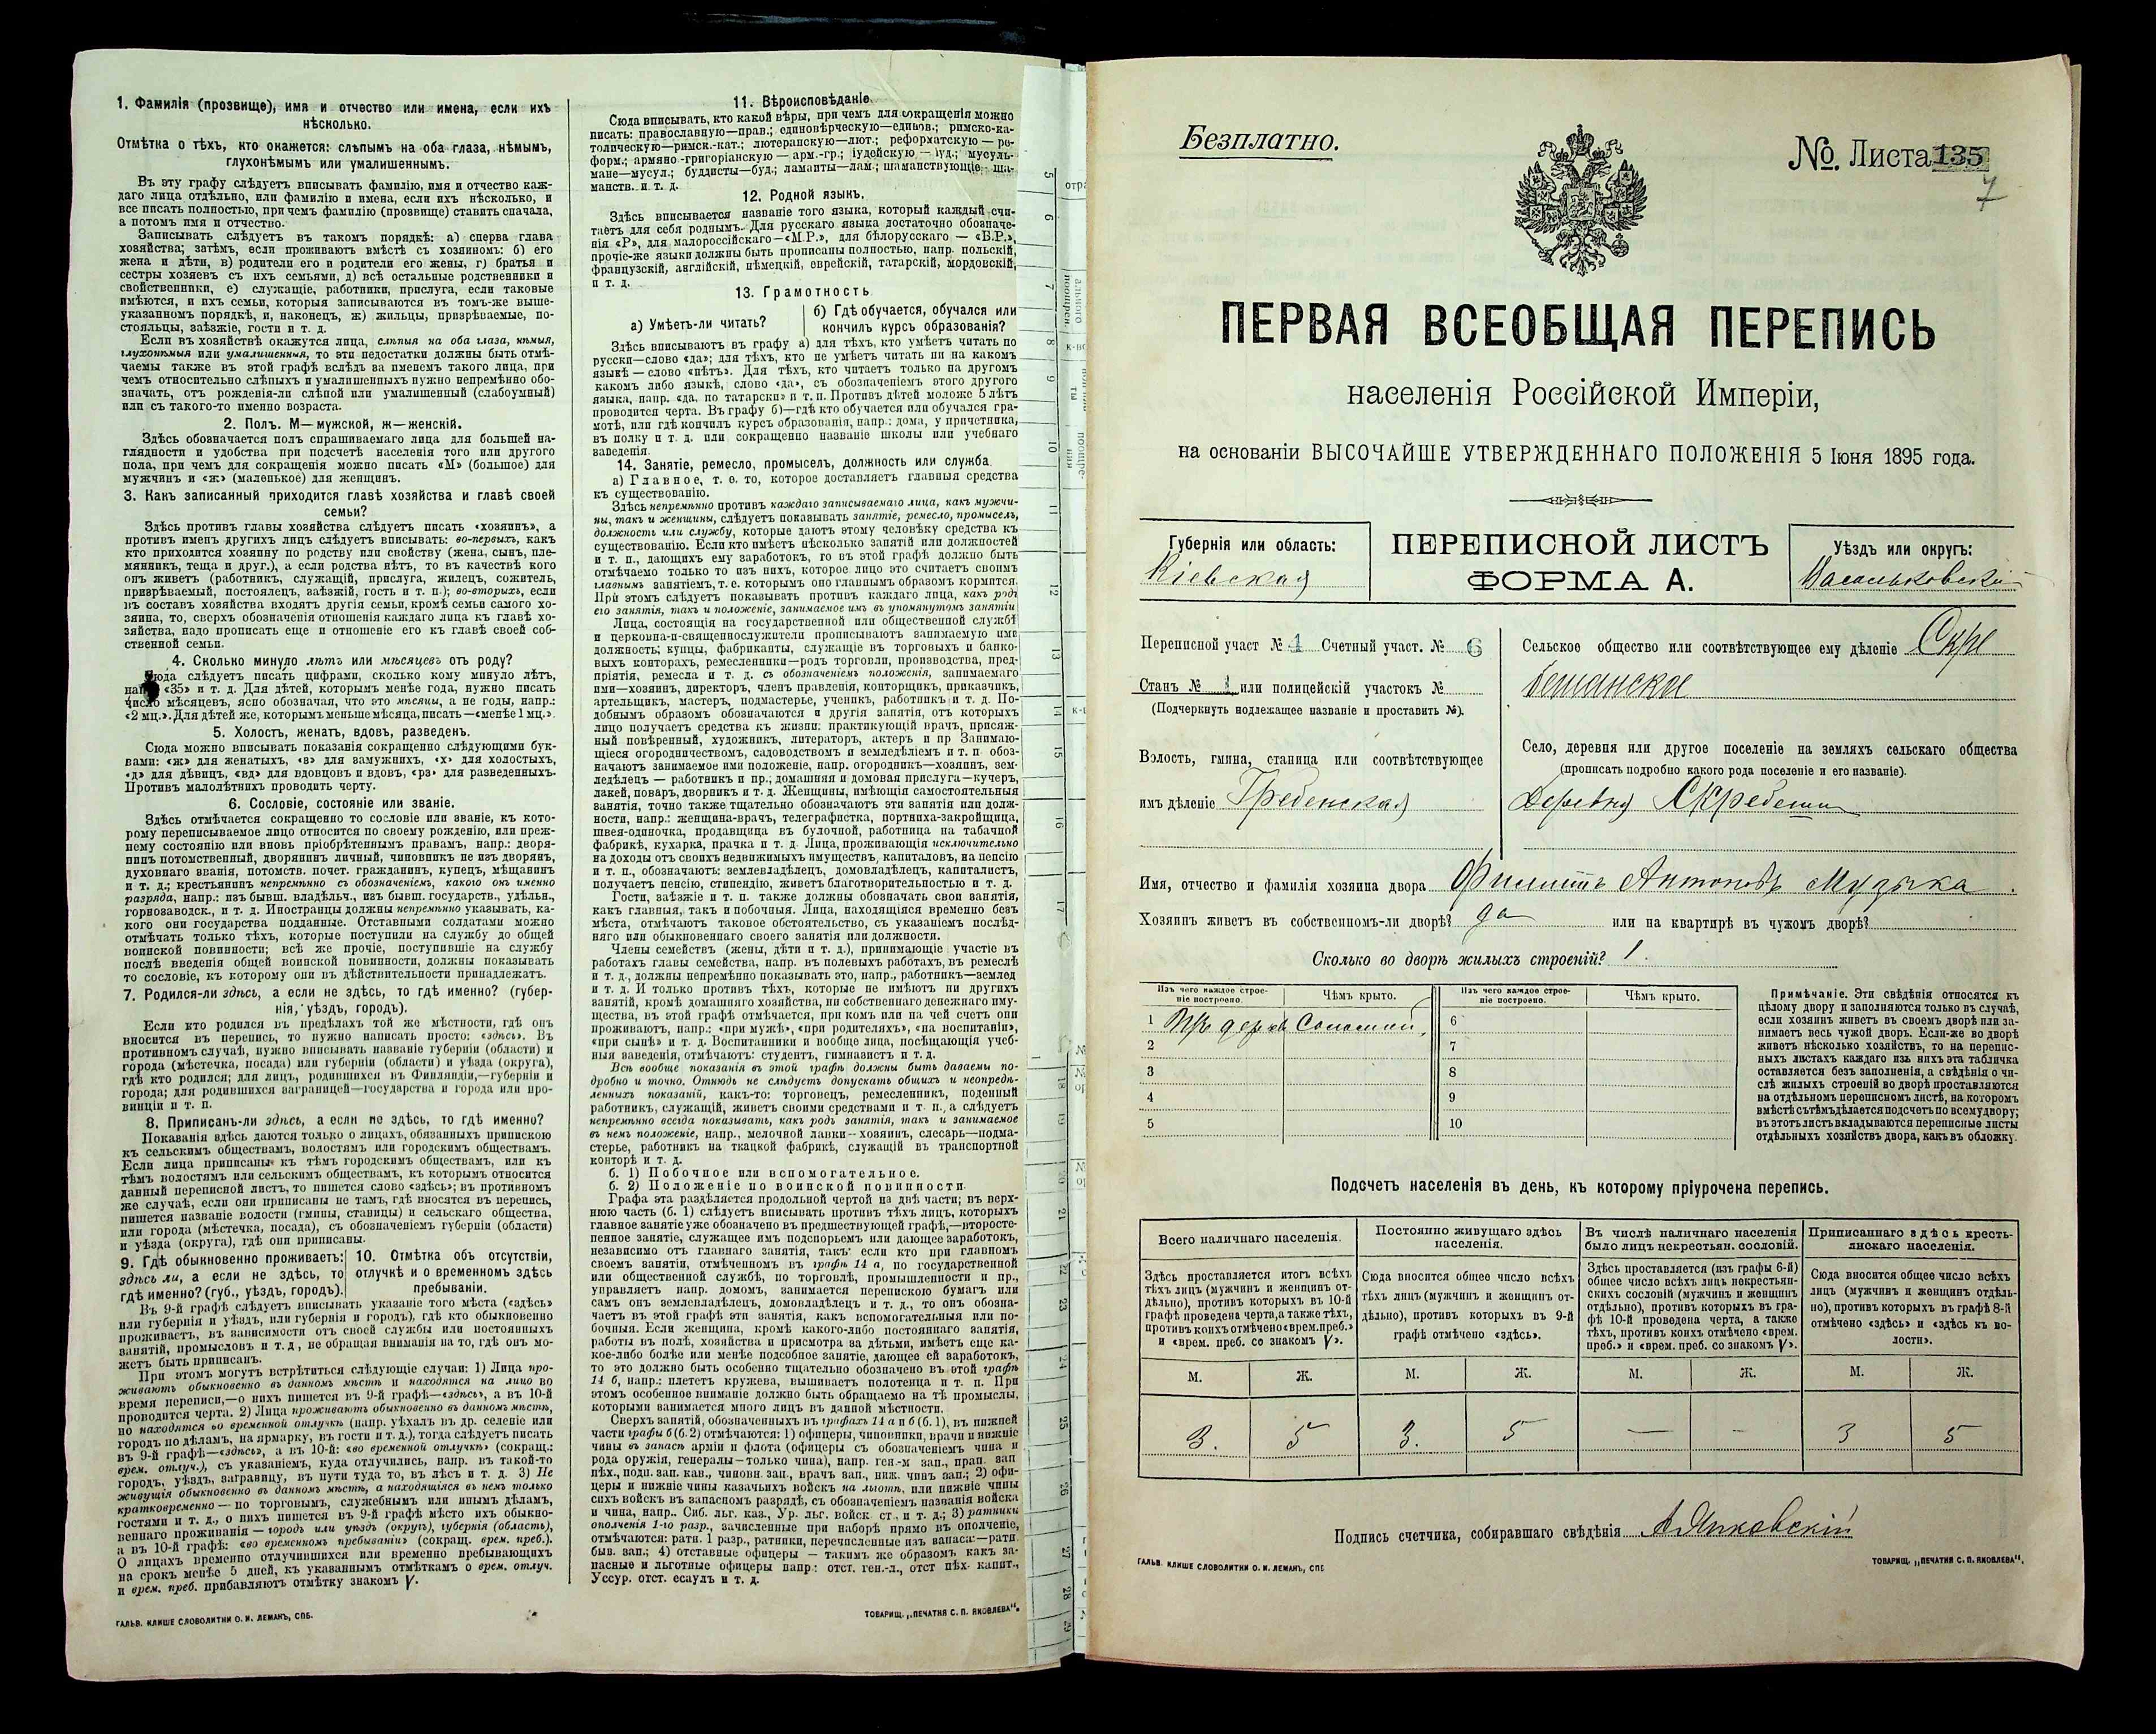 1. Фамилія (прозвище), имя и отчество или имена, если ихъ
нѣсколько.
Отмѣтка о тѣхъ, кто окажется: слѣпымъ на оба глаза, нѣмымъ,
глухонѣмымъ или умалишеннымъ.
Въ эту графу слѣдуетъ вписывать фамилію, имя и отчество каж-
даго лица отдѣльно, или фамилію и имена, если ихъ нѣсколько, и
все писать полностью, при чемъ фамилію (прозвище) ставить сначала,
а потомъ имя и отчество.
Записывать слѣдуетъ въ такомъ порядкѣ: а) сперва глава
хозяйства; затѣмъ, если проживаютъ вмѣстѣ съ хозяиномъ: б) его
жена и дѣти, в) родители его и родители его жены, г) братья и
сестры хозяевъ съ ихъ семьями, д) всѣ остальные родственники и
свойственники, е) служащіе, работники, прислуга, если таковые
имѣются, и ихъ семьи, которыя записываются въ томъ-же выше-
указанномъ порядкѣ, и, наконецъ, ж) жильцы, призрѣваемые, по-
стояльцы, заѣзжіе, гости и т. д.
Если въ хозяйствѣ окажутся лица, слѣпыя на оба глаза, нѣмыя,
глухонѣмыя или умалишенныя, то эти недостатки должны быть отмѣ-
чаемы также въ этой графѣ вслѣдъ за именемъ такого лица, при
чемъ относительно слѣпыхъ и умалишенныхъ нужно непремѣнно обо-
значать, отъ рожденія-ли слѣпой или умалишенный (слабоумный)
или съ такого-то именно возраста.
2. Полъ. М—мужской, ж—женскій.
Здѣсь обозначается полъ спрашиваемаго лица для большей на-
глядности и удобства при подсчетѣ населенія того или другого
пола, при чемъ для сокращенія можно писать «М» (большое) для
мужчинъ и «ж» (маленькое) для женщинъ.
3. Какъ записанный приходится главѣ хозяйства и главѣ своей
семьи?
Здѣсь противъ главы хозяйства слѣдуетъ писать «хозяинъ», а
противъ именъ другихъ лицъ слѣдуетъ вписывать: во-первыхъ, какъ
кто приходится хозяину по родству или свойству (жена, сынъ, пле-
мянникъ, теща и друг.), а если родства нѣтъ, то въ качествѣ кого
онъ живетъ (работникъ, служащій, прислуга, жилецъ, сожитель,
призрѣваемый, постоялецъ, заѣзжій, гость и т. п.); во-вторыхъ, если
въ составъ хозяйства входятъ другія семьи, кромѣ семьи самого хо-
зяина, то, сверхъ обозначенія отношенія каждаго лица къ главѣ хо-
зяйства, надо прописать еще и отношеніе его къ главѣ своей соб-
ственной семьи.
4. Сколько минуло лѣтъ или мѣсяцевъ отъ роду?
Сюда слѣдуетъ писать цифрами, сколько кому минуло лѣтъ,
«35» и т. д. Для дѣтей, которымъ менѣе года, нужно писать
число мѣсяцевъ, ясно обозначая, что это мѣсяцы, а не годы, напр.:
«2 мц.». Для дѣтей же, которымъ меньше мѣсяца, писать—«менѣе 1 мц.».
5. Холостъ, женатъ, вдовъ, разведенъ.
Сюда можно вписывать показанія сокращенно слѣдующими бук-
вами: «ж» для женатыхъ, «з» для замужнихъ, «х» для холостыхъ,
«д» для дѣвицъ, «вд» для вдовцовъ и вдовъ, «рз» для разведенныхъ.
Противъ малолѣтнихъ проводить черту.
6. Сословіе, состояніе или званіе.
Здѣсь отмѣчается сокращенно то сословіе или званіе, къ кото-
рому переписываемое лицо относится по своему рожденію, или преж-
нему состоянію или вновь пріобрѣтеннымъ правамъ, напр.: дворя-
нинъ потомственный, дворянинъ личный, чиновникъ не изъ дворянъ,
духовнаго званія, потомств. почет. гражданинъ, купецъ, мѣщанинъ
и т. д.; крестьянинъ непремѣнно съ обозначеніемъ, какого онъ именно
разряда, напр.: изъ бывш. владѣльч., изъ бывш. государств., удѣльн.,
горнозаводск., и т. д. Иностранцы должны непремѣнно указывать, ка-
кого они государства подданные. Отставными солдатами можно
отмѣчать только тѣхъ, которые поступили на службу до общей
воинской повинности; всѣ же прочіе, поступившіе на службу
послѣ введенія общей воинской повинности, должны показывать
то сословіе, къ которому они въ дѣйствительности принадлежатъ.
7. Родился-ли здѣсь, а если не здѣсь, то гдѣ именно? (губер-
нія, уѣздъ, городъ).
Если кто родился въ предѣлахъ той же мѣстности, гдѣ онъ
вносится въ перепись, то нужно написать просто: «здѣсь». Въ
противномъ случаѣ, нужно вписывать названіе губерніи (области) и
города (мѣстечка, посада) или губерніи (области) и уѣзда (округа),
гдѣ кто родился; для лицъ, родившихся въ Финляндіи,—губерніи и
города; для родившихся заграницей—государства и города или про-
винціи и т. п.
8. Приписанъ-ли здѣсь, а если не здѣсь, то гдѣ именно?
Показанія здѣсь даются только о лицахъ, обязанныхъ припискою
къ сельскимъ обществамъ, волостямъ или городскимъ обществамъ.
Если лица приписаны къ тѣмъ городскимъ обществамъ, или къ
тѣмъ волостямъ или сельскимъ обществамъ, къ которымъ относится
данный переписной листъ, то пишется слово «здѣсь»; въ противномъ
же случаѣ, если они приписаны не тамъ, гдѣ вносятся въ перепись,
пишется названіе волости (гмины, станицы) и сельскаго общества,
или города (мѣстечка, посада), съ обозначеніемъ губерніи (области)
и уѣзда (округа), гдѣ они приписаны.
9. Гдѣ обыкновенно проживаетъ:
здѣсь ли, а если не здѣсь, то
гдѣ именно? (губ., уѣздъ, городъ).
10. Отмѣтка объ отсутствіи,
отлучкѣ и о временномъ здѣсь
пребываніи.
Въ 9-й графѣ слѣдуетъ вписывать указаніе того мѣста («здѣсь»
или губернія и уѣздъ, или губернія и городъ), гдѣ кто обыкновенно
проживаетъ, въ зависимости отъ своей службы или постоянныхъ
занятій, промысловъ и т. д., не обращая вниманія на то, гдѣ онъ мо-
жетъ быть приписанъ.
При этомъ могутъ встрѣтиться слѣдующіе случаи: 1) Лица про-
живаютъ обыкновенно въ данномъ мѣстѣ и находятся на лицо во
время переписи,—о нихъ пишется въ 9-й графѣ—«здѣсь», а въ 10-й
проводится черта. 2) Лица проживаютъ обыкновенно въ данномъ мѣстѣ,
но находятся во временной отлучкѣ (напр. уѣхалъ въ др. селеніе или
городъ по дѣламъ, на ярмарку, въ гости и т. д.), тогда слѣдуетъ писать
въ 9-й графѣ—«здѣсь», а въ 10-й: «во временной отлучкѣ» (сокращ.:
врем. отлуч.), съ указаніемъ, куда отлучились, напр. въ такой-то
городъ, уѣздъ, заграницу, въ пути туда то, въ лѣсъ и т. д. 3) Не
живущія обыкновенно въ данномъ мѣстѣ, а находящіяся въ немъ только
кратковременно — по торговымъ, служебнымъ или инымъ дѣламъ,
гостями и т. д., о нихъ пишется въ 9-й графѣ мѣсто ихъ обыкно-
веннаго проживанія — городъ или уѣздъ (округъ), губернія (область),
а въ 10-й графѣ: «во временномъ пребываніи» (сокращ. врем. преб.).
О лицахъ временно отлучившихся или временно пребывающихъ
на срокъ менѣе 5 дней, къ указаннымъ отмѣткамъ о врем. отлуч.
и врем. преб. прибавляютъ отмѣтку знакомъ V.
ГАЛЬВ. КЛИШЕ СЛОВОЛИТНИ О. И. ЛЕМАНЪ, СПБ.
11. Вѣроисповѣданіе.
Сюда вписывать, кто какой вѣры, при чемъ для сокращенія можно
писать: православную—прав.; единовѣрческую—единов.; римско-ка-
толическую—римск.-кат.; лютеранскую—лют.; реформатскую — ре-
форм.; армяно-григоріанскую — арм.-гр.; іудейскую — іуд.; мусуль-
мане—мусул.; буддисты—буд.; ламаиты—лам.; шаманствующіе—ша-
манств. и т. д.
12. Родной языкъ.
Здѣсь вписывается названіе того языка, который каждый счи-
таетъ для себя роднымъ. Для русскаго языка достаточно обозначе-
нія «Р», для малороссійскаго—«М.Р.», для бѣлорусскаго — «Б.Р.»,
прочіе-же языки должны быть прописаны полностью, напр. польскій,
французскій, англійскій, нѣмецкій, еврейскій, татарскій, мордовскій,
и т. д.
13. Грамотность
а) Умѣетъ-ли читать?
б) Гдѣ обучается, обучался или
кончилъ курсъ образованія?
Здѣсь вписываютъ въ графу а) для тѣхъ, кто умѣетъ читать по
русски—слово «да»; для тѣхъ, кто не умѣетъ читать ни на какомъ
языкѣ — слово «нѣтъ». Для тѣхъ, кто читаетъ только на другомъ
какомъ либо языкѣ, слово «да», съ обозначеніемъ этого другого
языка, напр. «да, по татарски» и т. п. Противъ дѣтей моложе 5 лѣтъ
проводится черта. Въ графу б)—гдѣ кто обучается или обучался гра-
мотѣ, или гдѣ кончилъ курсъ образованія, напр.: дома, у причетника,
въ полку и т. д. или сокращенно названіе школы или учебнаго
заведенія.
14. Занятіе, ремесло, промыселъ, должность или служба
а) Главное, т. е. то, которое доставляетъ главныя средства
къ существованію.
Здѣсь непремѣнно противъ каждаго записываемаго лица, какъ мужчи-
ны, такъ и женщины, слѣдуетъ показывать занятіе, ремесло, промыселъ,
должность или службу, которые даютъ этому человѣку средства къ
существованію. Если кто имѣетъ нѣсколько занятій или должностей
и т. п., дающихъ ему заработокъ, то въ этой графѣ должно быть
отмѣчаемо только то изъ нихъ, которое лицо это считаетъ своимъ
главнымъ занятіемъ, т. е. которымъ оно главнымъ образомъ кормится.
При этомъ слѣдуетъ показывать противъ каждаго лица, какъ родъ
его занятія, такъ и положеніе, занимаемое имъ въ упомянутомъ занятіи
Лица, состоящія на государственной или общественной службѣ
и церковно-и-священнослужители прописываютъ занимаемую ими
должность; купцы, фабриканты, служащіе въ торговыхъ и банко-
выхъ конторахъ, ремесленники—родъ торговли, производства, пред-
пріятія, ремесла и т. д. съ обозначеніемъ положенія, занимаемаго
ими—хозяинъ, директоръ, членъ правленія, конторщикъ, приказчикъ,
артельщикъ, мастеръ, подмастерье, ученикъ, работникъ и т. д. По-
добнымъ образомъ обозначаются и другія занятія, отъ которыхъ
лицо получаетъ средства къ жизни: практикующій врачъ, присяж-
ный повѣренный, художникъ, литераторъ, актеръ и пр Занимаю-
щіеся огородничествомъ, садоводствомъ и земледѣліемъ и т. п обоз-
начаютъ занимаемое ими положеніе, напр. огородникъ—хозяинъ, зем-
ледѣлецъ — работникъ и пр.; домашняя и домовая прислуга—кучеръ,
лакей, поваръ, дворникъ и т. д. Женщины, имѣющія самостоятельныя
занятія, точно также тщательно обозначаютъ эти занятія или долж-
ности, напр.: женщина-врачъ, телеграфистка, портниха-закройщица,
швея-одиночка, продавщица въ булочной, работница на табачной
фабрикѣ, кухарка, прачка и т. д. Лица, проживающія исключительно
на доходы отъ своихъ недвижимыхъ имуществъ, капиталовъ, на пенсію
и т. п., обозначаютъ: землевладѣлецъ, домовладѣлецъ, капиталистъ,
получаетъ пенсію, стипендію, живетъ благотворительностью и т. д.
Гости, заѣзжіе и т. п. также должны обозначать свои занятія,
какъ главныя, такъ и побочныя. Лица, находящіяся временно безъ
мѣста, отмѣчаютъ таковое обстоятельство, съ указаніемъ послѣд-
няго или обыкновеннаго своего занятія или должности.
Члены семействъ (жены, дѣти и т. д.), принимающіе участіе въ
работахъ главы семейства, напр. въ полевыхъ работахъ, въ ремеслѣ
и т. д., должны непремѣнно показывать это, напр., работникъ—землед
и т. д. И только противъ тѣхъ, которые не имѣютъ ни другихъ
занятій, кромѣ домашняго хозяйства, ни собственнаго денежнаго иму-
щества, въ этой графѣ отмѣчается, при комъ или на чей счетъ они
проживаютъ, напр.: «при мужѣ», «при родителяхъ», «на воспитаніи»,
«при сынѣ» и т. д. Воспитанники и вообще лица, посѣщающія учеб-
ныя заведенія, отмѣчаютъ: студентъ, гимназистъ и т. д.
Всѣ вообще показанія въ этой графѣ должны быть даваемы по-
дробно и точно. Отнюдь не слѣдуетъ допускать общихъ и неопредѣ-
ленныхъ показаній, какъ-то: торговецъ, ремесленникъ, поденный
работникъ, служащій, живетъ своими средствами и т. п., а слѣдуетъ
непремѣнно всегда показывать, какъ родъ занятія, такъ и занимаемое
въ немъ положеніе, напр., мелочной лавки--хозяинъ, слесарь—подма-
стерье, работникъ на ткацкой фабрикѣ, служащій въ транспортной
конторѣ и т. д.
б. 1) Побочное или вспомогательное.
б. 2) Положеніе по воинской повинности.
Графа эта раздѣляется продольной чертой на двѣ части; въ верх-
нюю часть (б. 1) слѣдуетъ вписывать противъ тѣхъ лицъ, которыхъ
главное занятіе уже обозначено въ предшествующей графѣ,—второсте-
пенное занятіе, служащее имъ подспорьемъ или дающее заработокъ,
независимо отъ главнаго занятія, такъ: если кто при главномъ
своемъ занятіи, отмѣченномъ въ графѣ 14 а, по государственной
или общественной службѣ, по торговлѣ, промышленности и пр.,
управляетъ напр. домомъ, занимается перепискою бумагъ или
самъ онъ землевладѣлецъ, домовладѣлецъ и т. д., то онъ обозна-
чаетъ въ этой графѣ эти занятія, какъ вспомогательныя или по-
бочныя. Если женщина, кромѣ какого-либо постояннаго занятія,
работы въ полѣ, хозяйства и присмотра за дѣтьми, имѣетъ еще ка-
кое-либо болѣе или менѣе подсобное занятіе, дающее ей заработокъ,
то это должно быть особенно тщательно обозначено въ этой графѣ
14 б, напр.: плететъ кружева, вышиваетъ полотенца и т. п. При
этомъ особенное вниманіе должно быть обращаемо на тѣ промыслы,
которыми занимается много лицъ въ данной мѣстности.
Сверхъ занятій, обозначенныхъ въ графахъ 14 а и б (б. 1), въ нижней
части графы б (б. 2) отмѣчаются: 1) офицеры, чиновники, врачи и нижніе
чины въ запасѣ арміи и флота (офицеры съ обозначеніемъ чина и
рода оружія, генералы—только чина), напр. ген.-м зап., прап. зап
пѣх., подп. зап. кав., чиновн. зап., врачъ зап., ниж. чинъ зап.; 2) офи-
церы и нижніе чины казачьихъ войскъ на льготѣ, или нижніе чины
сихъ войскъ въ запасномъ разрядѣ, съ обозначеніемъ названія войска
и чина, напр.. Сиб. льг. каз., Ур. льг. войск. ст., и т. д.; 3) ратники
ополченія 1-го разр., зачисленные при наборѣ прямо въ ополченіе,
отмѣчаются: ратн. 1 разр., ратники, перечисленные изъ запаса:—ратн.
быв. зап.; 4) отставные офицеры — такимъ же образомъ какъ за-
пасные и льготные офицеры напр.: отст. ген.-л., отст пѣх. капит.,
Уссур. отст. есаулъ и т. д.
ТОВАРИЩ. „ПЕЧАТНЯ С. П. ЯКОВЛЕВА“.
Безплатно.
№ Листа 135
7
ПЕРВАЯ ВСЕОБЩАЯ ПЕРЕПИСЬ
населенія Россійской Имперіи,
на основаніи ВЫСОЧАЙШЕ УТВЕРЖДЕННАГО ПОЛОЖЕНІЯ 5 Іюня 1895 года.
Губернія или область:
Кіевская
ПЕРЕПИСНОЙ ЛИСТЪ
ФОРМА А.
Уѣздъ или округъ:
Васильковскій
Переписной участ № 1 Счетный участ. № 6
Станъ № 1 или полицейскій участокъ №
(Подчеркнуть подлежащее названіе и проставить №).
Волость, гмина, станица или соотвѣтствующее
имъ дѣленіе Гребенская
Сельское общество или соотвѣтствующее ему дѣленіе Скре
бешанское
Село, деревня или другое поселеніе на земляхъ сельскаго общества
(прописать подробно какого рода поселеніе и его названіе).
Деревня Скребеши
Имя, отчество и фамилія хозяина двора Филиппъ Антоновъ Музыка
Хозяинъ живетъ въ собственномъ-ли дворѣ? да или на квартирѣ въ чужомъ дворѣ?
Сколько во дворѣ жилыхъ строеній? 1.
Изъ чего каждое строе-
ніе построено.
Чѣмъ крыто.
Изъ чего каждое строе-
ніе построено.
Чѣмъ крыто.
1 Изъ дерева Соломой
6
2
7
3
8
4
9
5
10
Примѣчаніе. Эти свѣдѣнія относятся къ
цѣлому двору и заполняются только въ случаѣ,
если хозяинъ живетъ въ своемъ дворѣ или за-
нимаетъ весь чужой дворъ. Если-же во дворѣ
живетъ нѣсколько хозяйствъ, то на перепис-
ныхъ листахъ каждаго изъ нихъ эта табличка
оставляется безъ заполненія, а свѣдѣнія о чи-
слѣ жилыхъ строеній во дворѣ проставляются
на отдѣльномъ переписномъ листѣ, на которомъ
вмѣстѣ съ тѣмъ дѣлается подсчетъ по всему двору;
въ этотъ листъ вкладываются переписные листы
отдѣльныхъ хозяйствъ двора, какъ въ обложку.
Подсчетъ населенія въ день, къ которому пріурочена перепись.
Всего наличнаго населенія.
Постоянно живущаго здѣсь
населенія.
Въ числѣ наличнаго населенія
было лицъ некрестьян. сословій.
Приписаннаго здѣсь кресть-
янскаго населенія.
Здѣсь проставляется итогъ всѣхъ
тѣхъ лицъ (мужчинъ и женщинъ от-
дѣльно), противъ которыхъ въ 10-й
графѣ проведена черта, а также тѣхъ,
противъ коихъ отмѣчено «врем. преб.»
и «врем. преб. со знакомъ V».
Сюда вносится общее число всѣхъ
тѣхъ лицъ (мужчинъ и женщинъ от-
дѣльно), противъ которыхъ въ 9-й
графѣ отмѣчено «здѣсь».
Здѣсь проставляется (изъ графы 6-й)
общее число всѣхъ лицъ некрестьян-
скихъ сословій (мужчинъ и женщинъ
отдѣльно), противъ которыхъ въ гра-
фѣ 10-й проведена черта, а также
тѣхъ, противъ коихъ отмѣчено «врем.
преб.» и «врем. преб. со знакомъ V».
Сюда вносится общее число всѣхъ
лицъ (мужчинъ и женщинъ отдѣль-
но), противъ которыхъ въ графѣ 8-й
отмѣчено «здѣсь» и «здѣсь къ во-
лости».
М. Ж. М. Ж. М. Ж. М. Ж.
3. 5 3. 5 — — 3 5
Подпись счетчика, собиравшаго свѣдѣнія А. Янковскій
ГАЛЬВ. КЛИШЕ СЛОВОЛИТНИ О. И. ЛЕМАНЪ, СПБ
ТОВАРИЩ. „ПЕЧАТНЯ С. П. ЯКОВЛЕВА“.